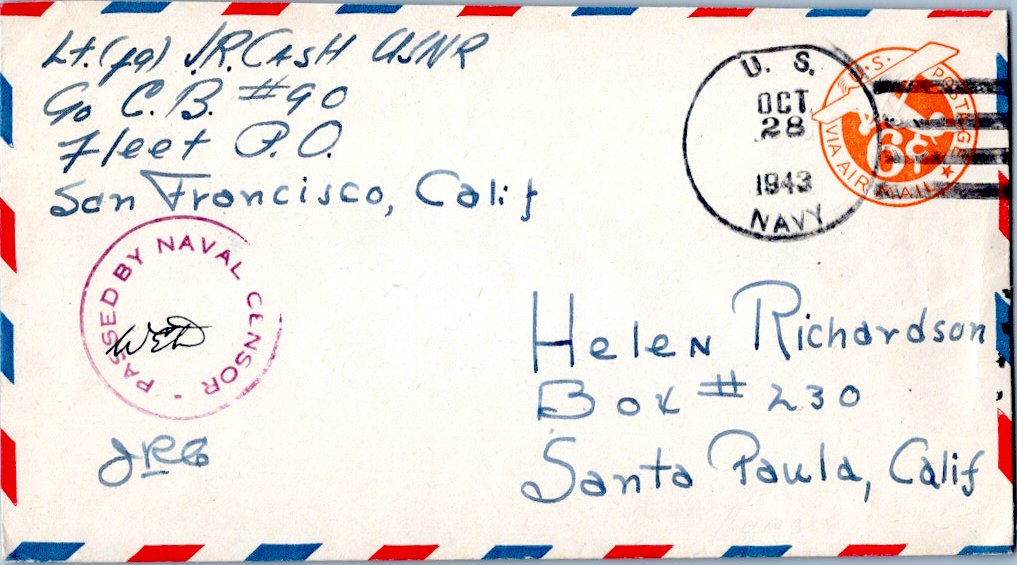 Lt. (jg) J.R. CASH USNR
Co C.B. #90
Fleet P.O.
San Francisco, Calif
U. S.
OCT
28
1943
NAVY
U.S. POSTAGE
6¢
VIA AIR MAIL
PASSED BY NAVAL CENSOR
WED
Helen Richardson
Box # 230
Santa Paula, Calif
JRC